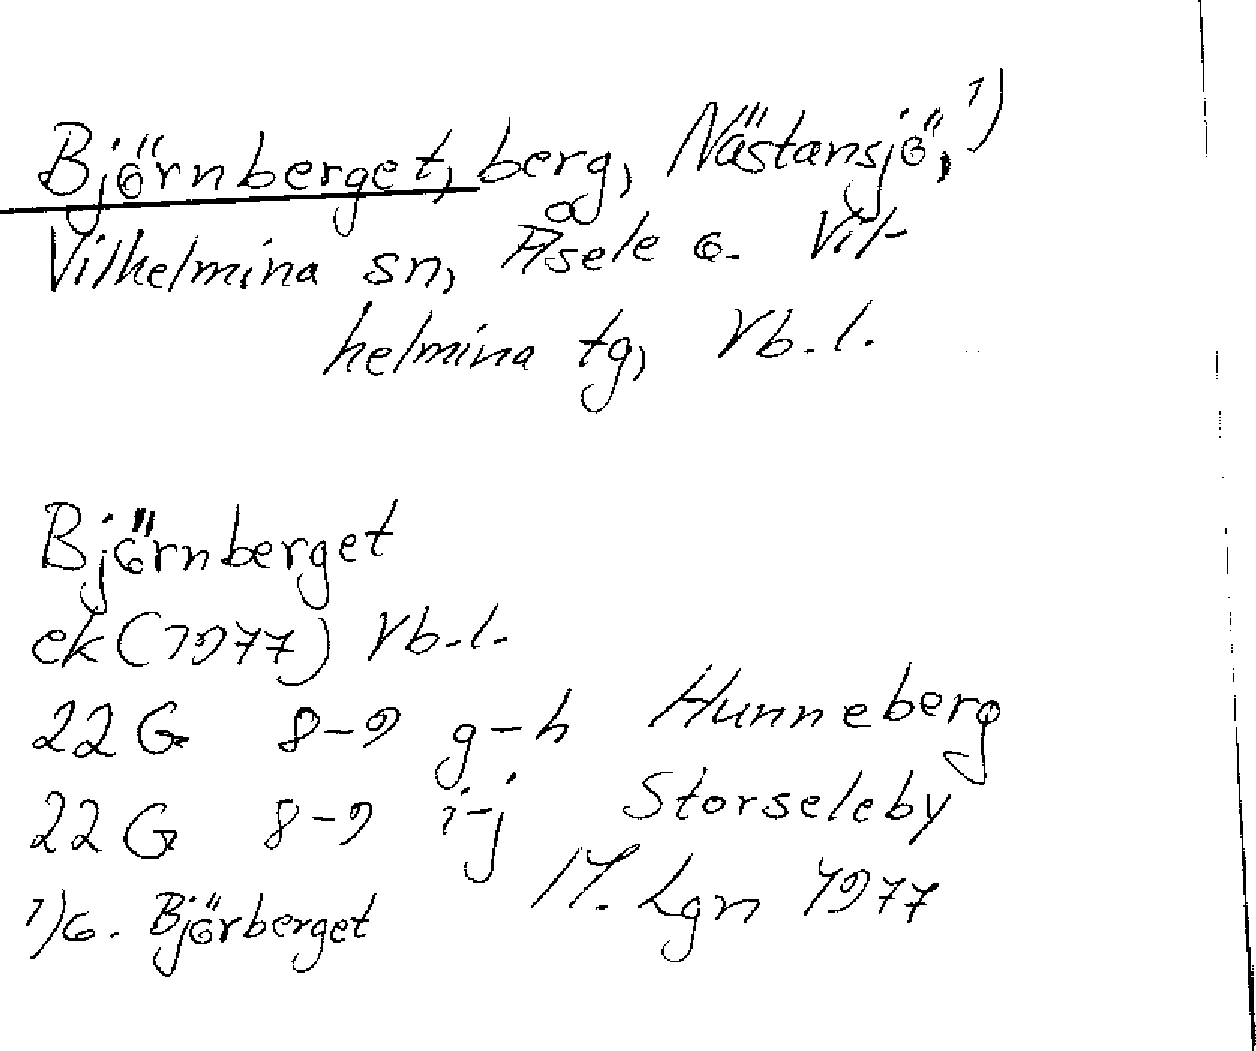 Björnberget, berg, Nästansjö, 1)
Vilhelmina sn, Åsele o. Vil-
helmina tg, Vb. l.
Björnberget
ek (1977) Vb. l.
22 G 8-9 g-h Hunneberg
22 G 8-9 i-j Storseleby
1) o. Björberget
M. Lgn 1977